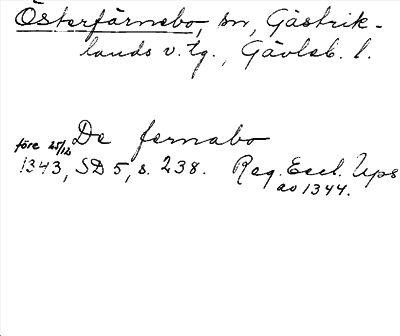 Österfärnebo, sn, Gästrik-
lands v. tg., Gävleb. l.
De fernabo
före 25/12
1343, SD 5, s. 238. Reg. Eccl. Ups
ao 1344.